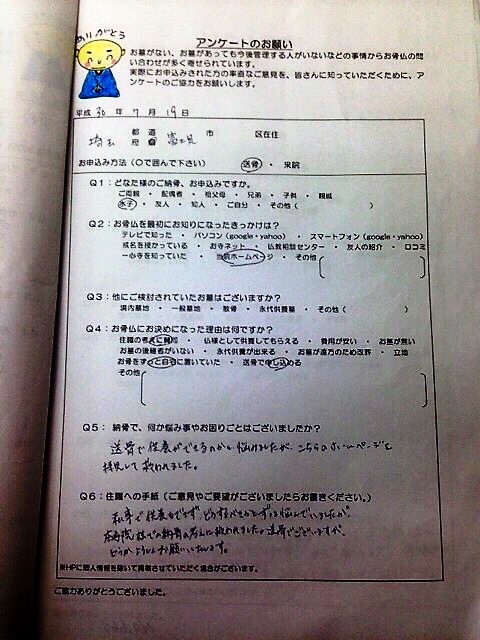 ありがとう
アンケートのお願い
お墓がない、お墓があっても今後管理する人がいないなどの事情からお骨仏の問
い合わせが多く寄せられています。
実際にお申込みされた方の率直なご意見を、皆さんに知っていただくために、ア
ンケートのご協力をお願いします。
平成 30 年 7 月 19 日
埼玉 都道府県 富士見 市 区在住
お申込み方法(○で囲んで下さい) 送骨 ・ 来院
Q1:どなた様のご納骨、お申込みですか。
ご両親 ・ 配偶者 ・ 祖父母 ・ 兄弟 ・ 子供 ・ 親戚
水子 ・ 友人 ・ 知人 ・ ご自分 ・ その他( )
Q2:お骨仏を最初にお知りになったきっかけは?
テレビで知った ・ パソコン(google・yahoo) ・ スマートフォン(google・yahoo)
戒名を授かっている ・ お寺ネット ・ 仏教相談センター ・ 友人の紹介 ・ 口コミ
一心寺を知っていた ・ 当院ホームページ ・ その他
Q3:他にご検討されていたお墓はございますか?
境内墓地 ・ 一般墓地 ・ 散骨 ・ 永代供養墓 ・ その他( )
Q4:お骨仏にお決めになった理由は何ですか?
住職の考えに賛同 ・ 仏様として供養してもらえる ・ 費用が安い ・ お墓が無い
お墓の後継者がいない ・ 永代供養が出来る ・ お墓が遠方のため改葬 ・ 立地
お骨をずっと自宅に置いていた ・ 送骨で申し込める
その他
Q5:納骨で、何か悩み事やお困りごとはございましたか?
送骨で供養ができるのかと悩みましたが、こちらのホームページを
拝見して救われました。
Q6:住職への手紙(ご意見やご要望がございましたらお書きください。)
私事で供養もできず、どうすべきかとずっと悩んでいましたが、
様の お考えに救われました。送骨でございますが、
どうかよろしくお願いいたします。
※HPに個人情報を除いて掲載させていただく場合がございます。
ご協力ありがとうございました。